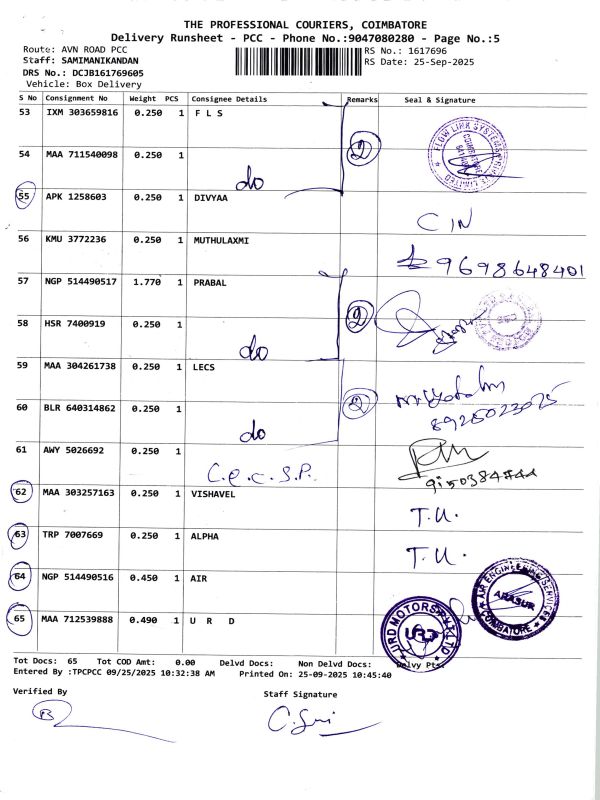 THE PROFESSIONAL COURIERS, COIMBATORE
Delivery Runsheet - PCC - Phone No.:9047080280 - Page No.:5
Route: AVN ROAD PCC
RS No.: 1617696
Staff: SAMIMANIKANDAN
RS Date: 25-Sep-2025
DRS No.: DCJB161769605
Vehicle: Box Delivery
S No Consignment No Weight PCS Consignee Details Remarks Seal & Signature
53 IXM 303659816 0.250 1 F L S
2 FLOW LINK SYSTEMS PRIVATE LIMITED
54 MAA 711540098 0.250 1
do
55 APK 1258603 0.250 1 DIVYAA
C IN
56 KMU 3772236 0.250 1 MUTHULAXMI
9698648401
57 NGP 514490517 1.770 1 PRABAL
2
58 HSR 7400919 0.250 1
do
59 MAA 304261738 0.250 1 LECS
2
60 BLR 640314862 0.250 1
8925023075
do
61 AWY 5026692 0.250 1
C.e.c.S.P.
62 MAA 303257163 0.250 1 VISHAVEL
T.U.
63 TRP 7007669 0.250 1 ALPHA
T.U.
64 NGP 514490516 0.450 1 AIR
AIR ENGINEERING SERVICES ARASUR COIMBATORE
65 MAA 712539888 0.490 1 U R D
URD MOTORS PVT LTD URD
Tot Docs: 65 Tot COD Amt: 0.00 Delvd Docs: Non Delvd Docs: Delvy Pts:
Entered By :TPCPCC 09/25/2025 10:32:38 AM Printed On: 25-09-2025 10:45:40
Verified By
Staff Signature